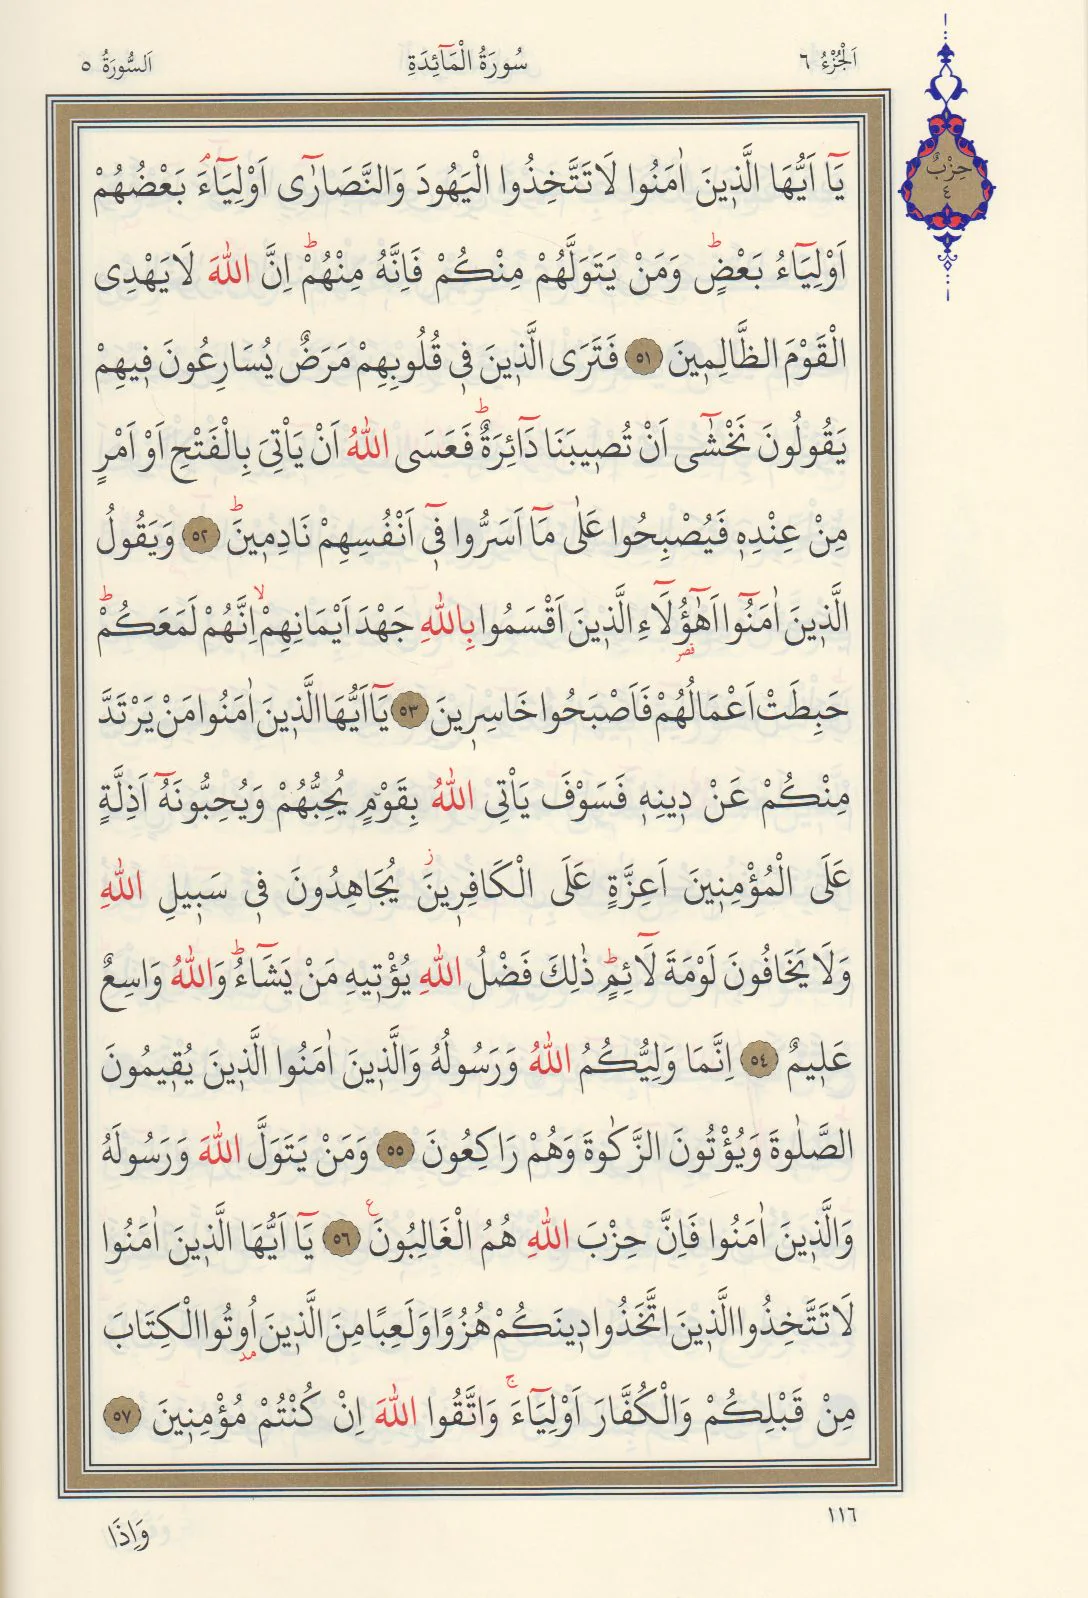 اَلْجُزْءُ ٦
سُورَةُ الْمَآئِدَةِ
اَلسُّورَةُ ٥
حِزْبٌ
٤
يَٓا اَيُّهَا الَّذ۪ينَ اٰمَنُوا لَا تَتَّخِذُوا الْيَهُودَ وَالنَّصَارٰٓى اَوْلِيَٓاءَۢ بَعْضُهُمْ
اَوْلِيَٓاءُ بَعْضٍۜ وَمَنْ يَتَوَلَّهُمْ مِنْكُمْ فَاِنَّهُ مِنْهُمْۜ اِنَّ اللّٰهَ لَا يَهْدِى
الْقَوْمَ الظَّالِم۪ينَ ٥١ فَتَرَى الَّذ۪ينَ ف۪ى قُلُوبِهِمْ مَرَضٌ يُسَارِعُونَ ف۪يهِمْ
يَقُولُونَ نَخْشٰٓى اَنْ تُص۪يبَنَا دَٓائِرَةٌۜ فَعَسَى اللّٰهُ اَنْ يَاْتِىَ بِالْفَتْحِ اَوْ اَمْرٍ
مِنْ عِنْدِه۪ فَيُصْبِحُوا عَلٰى مَٓا اَسَرُّوا ف۪ٓى اَنْفُسِهِمْ نَادِم۪ينَۜ ٥٢ وَيَقُولُ
الَّذ۪ينَ اٰمَنُٓوا اَهٰٓؤُ۬لَٓاءِ الَّذ۪ينَ اَقْسَمُوا بِاللّٰهِ جَهْدَ اَيْمَانِهِمْۙ اِنَّهُمْ لَمَعَكُمْۜ
قصر
حَبِطَتْ اَعْمَالُهُمْ فَاَصْبَحُوا خَاسِر۪ينَ ٥٣ يَٓا اَيُّهَا الَّذ۪ينَ اٰمَنُوا مَنْ يَرْتَدَّ
مِنْكُمْ عَنْ د۪ينِه۪ فَسَوْفَ يَاْتِى اللّٰهُ بِقَوْمٍ يُحِبُّهُمْ وَيُحِبُّونَهُٓ اَذِلَّةٍ
عَلَى الْمُؤْمِن۪ينَ اَعِزَّةٍ عَلَى الْكَافِر۪ينَۘ يُجَاهِدُونَ ف۪ى سَب۪يلِ اللّٰهِ
وَلَا يَخَافُونَ لَوْمَةَ لَٓائِمٍۜ ذٰلِكَ فَضْلُ اللّٰهِ يُؤْت۪يهِ مَنْ يَشَٓاءُۜ وَاللّٰهُ وَاسِعٌ
عَل۪يمٌ ٥٤ اِنَّمَا وَلِيُّكُمُ اللّٰهُ وَرَسُولُهُ وَالَّذ۪ينَ اٰمَنُوا الَّذ۪ينَ يُق۪يمُونَ
الصَّلٰوةَ وَيُؤْتُونَ الزَّكٰوةَ وَهُمْ رَاكِعُونَ ٥٥ وَمَنْ يَتَوَلَّ اللّٰهَ وَرَسُولَهُ
وَالَّذ۪ينَ اٰمَنُوا فَاِنَّ حِزْبَ اللّٰهِ هُمُ الْغَالِبُونَ ع ٥٦ يَٓا اَيُّهَا الَّذ۪ينَ اٰمَنُوا
لَا تَتَّخِذُوا الَّذ۪ينَ اتَّخَذُوا د۪ينَكُمْ هُزُوًا وَلَعِبًا مِنَ الَّذ۪ينَ اُو۫تُوا الْكِتَابَ
مد
مِنْ قَبْلِكُمْ وَالْكُفَّارَ اَوْلِيَٓاءَۚ وَاتَّقُوا اللّٰهَ اِنْ كُنْتُمْ مُؤْمِن۪ينَ ٥٧
١١٦
وَاِذَا